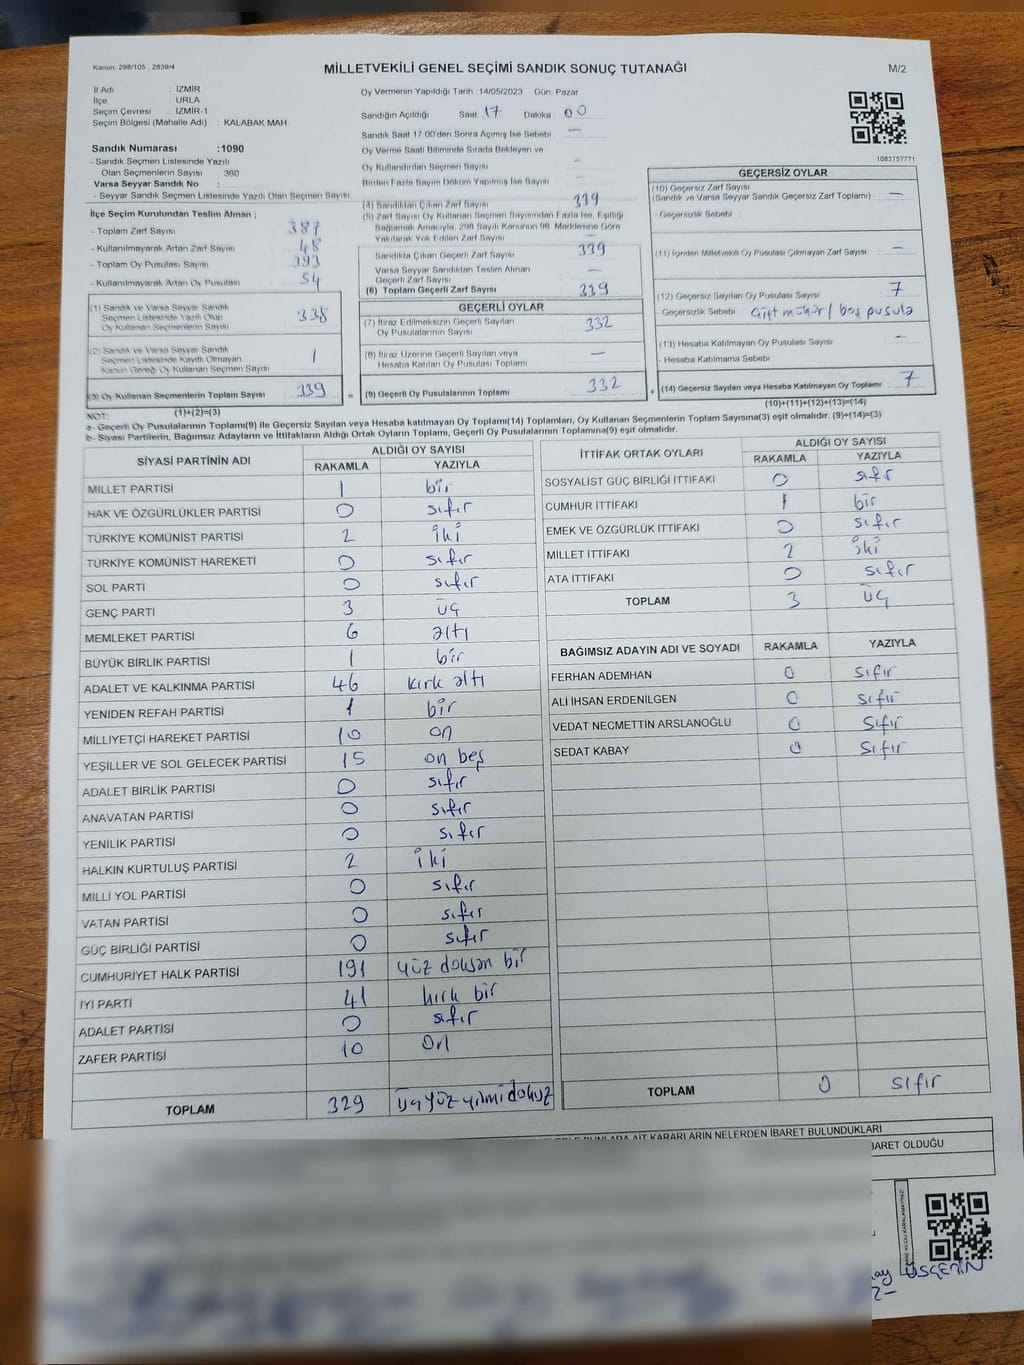 Kanun; 298/105 , 2839/4
MİLLETVEKİLİ GENEL SEÇİMİ SANDIK SONUÇ TUTANAĞI
M/2
İl Adı : İZMİR
İlçe : URLA
Seçim Çevresi : İZMİR-1
Seçim Bölgesi (Mahalle Adı) : KALABAK MAH.
Oy Vermenin Yapıldığı Tarih : 14/05/2023 Gün: Pazar
Sandığın Açıldığı Saat 17 Dakika : 00
Sandık Saat 17:00'den Sonra Açımış İse Sebebi : —
Oy Verme Saati Bitiminde Sırada Bekleyen ve
Oy Kullandırılan Seçmen Sayısı –
Birden Fazla Sayım Döküm Yapılmış İse Sayısı –
Sandık Numarası :1090
- Sandık Seçmen Listesinde Yazılı
Olan Seçmenlerin Sayısı 360
Varsa Seyyar Sandık No :
- Seyyar Sandık Seçmen Listesinde Yazılı Olan Seçmen Sayısı
1083757771
İlçe Seçim Kurulundan Teslim Alınan ;
- Toplam Zarf Sayısı 387
- Kullanılmayarak Artan Zarf Sayısı 48
- Toplam Oy Pusulası Sayısı 393
- Kullanılmayarak Artan Oy Pusulası 54
(1) Sandık ve Varsa Seyyar Sandık
Seçmen Listesinde Yazılı Olup
Oy Kullanan Seçmenlerin Sayısı 338
(2) Sandık ve Varsa Seyyar Sandık
Seçmen Listesinde Kayıtlı Olmayan
Kanun Gereği Oy Kullanan Seçmen Sayısı 1
(3) Oy Kullanan Seçmenlerin Toplam Sayısı 339
(1)+(2)=(3)
(4) Sandıktan Çıkan Zarf Sayısı 339
(5) Zarf Sayısı Oy Kullanan Seçmen Sayısından Fazla İse, Eşitliği
Sağlamak Amacıyla, 298 Sayılı Kanunun 98. Maddesine Göre
Yakılarak Yok Edilen Zarf Sayısı –
Sandıkta Çıkan Geçerli Zarf Sayısı 339
Varsa Seyyar Sandıktan Teslim Alınan
Geçerli Zarf Sayısı —
(6) Toplam Geçerli Zarf Sayısı 339
GEÇERLİ OYLAR
(7) İtiraz Edilmeksizin Geçerli Sayılan
Oy Pusulalarının Sayısı 332
(8) İtiraz Üzerine Geçerli Sayılan veya
Hesaba Katılan Oy Pusulalarının Sayısı —
= (9) Geçerli Oy Pusulalarının Toplamı 332
GEÇERSİZ OYLAR
(10) Geçersiz Zarf Sayısı
(Sandık ve Varsa Seyyar Sandık Geçersiz Zarf Toplamı) : —
- Geçersizlik Sebebi :
(11) İçinden Milletvekili Oy Pusulası Çıkmayan Zarf Sayısı —
(12) Geçersiz Sayılan Oy Pusulası Sayısı 7
- Geçersizlik Sebebi : Çift mühür / boş pusula
(13) Hesaba Katılmayan Oy Pusulası Sayısı –
- Hesaba Katılmama Sebebi :
+ (14) Geçersiz Sayılan veya Hesaba Katılmayan Oy Toplamı 7
(10)+(11)+(12)+(13)=(14)
NOT:
a- Geçerli Oy Pusulalarının Toplamı(9) ile Geçersiz Sayılan veya Hesaba katılmayan Oy Toplamı(14) Toplamları, Oy Kullanan Seçmenlerin Toplam Sayısına(3) eşit olmalıdır. (9)+(14)=(3)
b- Siyasi Partilerin, Bağımsız Adayların ve İttifakların Aldığı Ortak Oyların Toplamı, Geçerli Oy Pusulalarının Toplamına(9) eşit olmalıdır.
SİYASİ PARTİNİN ADI ALDIĞI OY SAYISI
RAKAMLA YAZIYLA
MİLLET PARTİSİ 1 bir
HAK VE ÖZGÜRLÜKLER PARTİSİ 0 sıfır
TÜRKİYE KOMÜNİST PARTİSİ 2 iki
TÜRKİYE KOMÜNİST HAREKETİ 0 sıfır
SOL PARTİ 0 sıfır
GENÇ PARTİ 3 üç
MEMLEKET PARTİSİ 6 altı
BÜYÜK BİRLİK PARTİSİ 1 bir
ADALET VE KALKINMA PARTİSİ 46 kırk altı
YENİDEN REFAH PARTİSİ 1 bir
MİLLİYETÇİ HAREKET PARTİSİ 10 on
YEŞİLLER VE SOL GELECEK PARTİSİ 15 on beş
ADALET BİRLİK PARTİSİ 0 sıfır
ANAVATAN PARTİSİ 0 sıfır
YENİLİK PARTİSİ 0 sıfır
HALKIN KURTULUŞ PARTİSİ 2 iki
MİLLİ YOL PARTİSİ 0 sıfır
VATAN PARTİSİ 0 sıfır
GÜÇ BİRLİĞİ PARTİSİ 0 sıfır
CUMHURİYET HALK PARTİSİ 191 yüz doksan bir
İYİ PARTİ 41 kırk bir
ADALET PARTİSİ 0 sıfır
ZAFER PARTİSİ 10 on
TOPLAM 329 üçyüz yirmi dokuz
İTTİFAK ORTAK OYLARI ALDIĞI OY SAYISI
RAKAMLA YAZIYLA
SOSYALİST GÜÇ BİRLİĞİ İTTİFAKI 0 sıfır
CUMHUR İTTİFAKI 1 bir
EMEK VE ÖZGÜRLÜK İTTİFAKI 0 sıfır
MİLLET İTTİFAKI 2 iki
ATA İTTİFAKI 0 sıfır
TOPLAM 3 üç
BAĞIMSIZ ADAYIN ADI VE SOYADI RAKAMLA YAZIYLA
FERHAN ADEMHAN 0 sıfır
ALİ İHSAN ERDENİLGEN 0 sıfır
VEDAT NECMETTİN ARSLANOĞLU 0 sıfır
SEDAT KABAY 0 sıfır
TOPLAM 0 sıfır
KARARLARIN NELERDEN İBARET BULUNDUKLARI
İBARET OLDUĞU